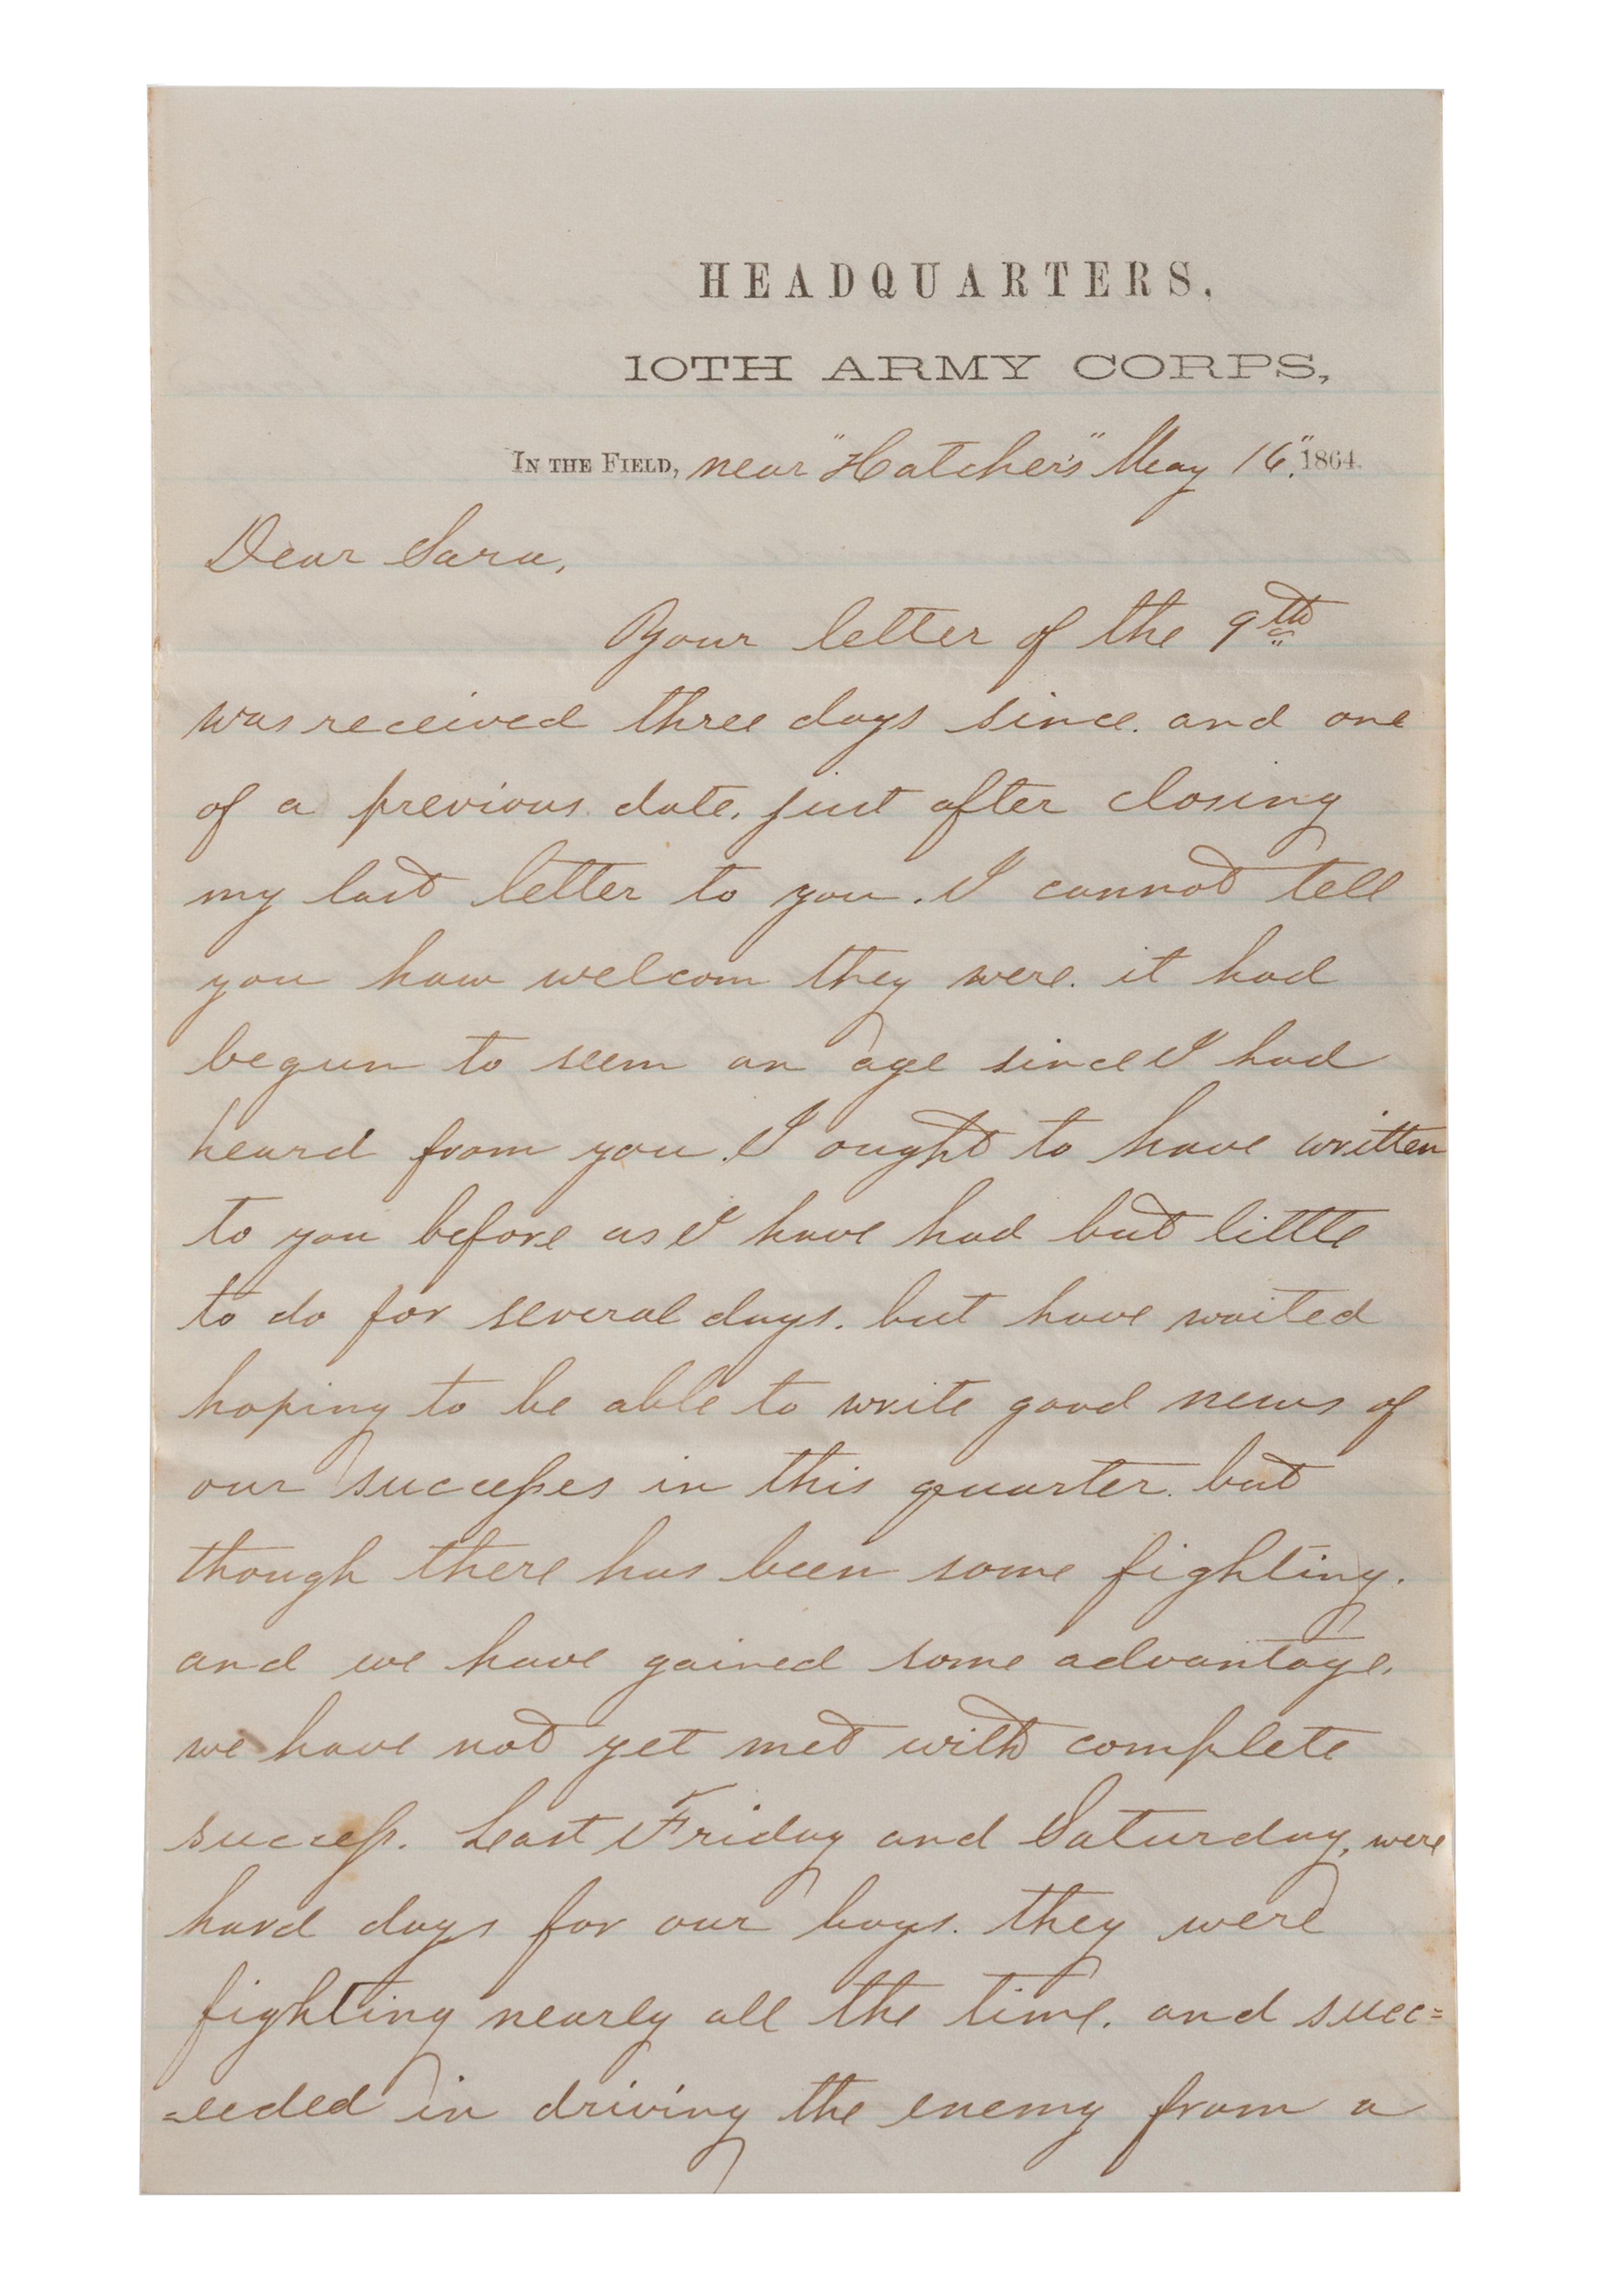 HEADQUARTERS,
10TH ARMY CORPS,
IN THE FIELD, near "Hatcher's" May 16", 1864.
Dear Sara,
Your letter of the 9th
was received three days since. and one
of a previous date, just after closing
my last letter to you. I cannot tell
you how welcom they were. it had
begun to seem an age since I had
heard from you. I ought to have written
to you before as I have had but little
to do for several days. but have waited
hoping to be able to write good news of
our successes in this quarter. but
though there has been some fighting.
and we have gained some advantage.
we have not yet met with complete
success. Last Friday and Saturday, were
hard days for our boys. they were
fighting nearly all the time. and succ=
=eeded in driving the enemy from a